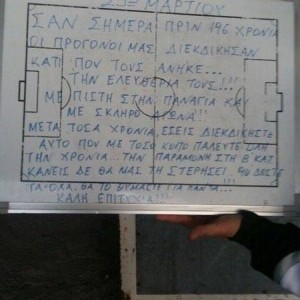 25Η ΜΑΡΤΙΟΥ
ΣΑΝ ΣΗΜΕΡΑ ΠΡΙΝ 196 ΧΡΟΝΙΑ
ΟΙ ΠΡΟΓΟΝΟΙ ΜΑΣ ΔΙΕΚΔΙΚΗΣΑΝ
ΚΑΤΙ ΠΟΥ ΤΟΥΣ ΑΝΗΚΕ...
ΤΗΝ ΕΛΕΥΘΕΡΙΑ ΤΟΥΣ!!!
ΜΕ ΠΙΣΤΗ ΣΤΗΝ ΠΑΝΑΓΙΑ ΚΑΙ
ΜΕ ΣΚΛΗΡΟ ΑΓΩΝΑ!
ΜΕΤΑ ΤΟΣΑ ΧΡΟΝΙΑ, ΕΣΕΙΣ ΔΙΕΚΔΙΚΕΙΤΕ
ΑΥΤΟ ΠΟΥ ΜΕ ΤΟΣΟ ΚΟΠΟ ΠΑΛΕΥΤΕ ΟΛΗ
ΤΗΝ ΧΡΟΝΙΑ... ΤΗΝ ΠΑΡΑΜΟΝΗ ΣΤΗ Β' ΚΑΤ.
ΚΑΝΕΙΣ ΔΕ ΘΑ ΜΑΣ ΤΗ ΣΤΕΡΗΣΕΙ. ΔΩΣΤΕ
ΤΑ ΟΛΑ. ΘΑ ΤΟ ΘΥΜΑΣΤΕ ΓΙΑ ΠΑΝΤΑ...
ΚΑΛΗ ΕΠΙΤΥΧΙΑ!!!